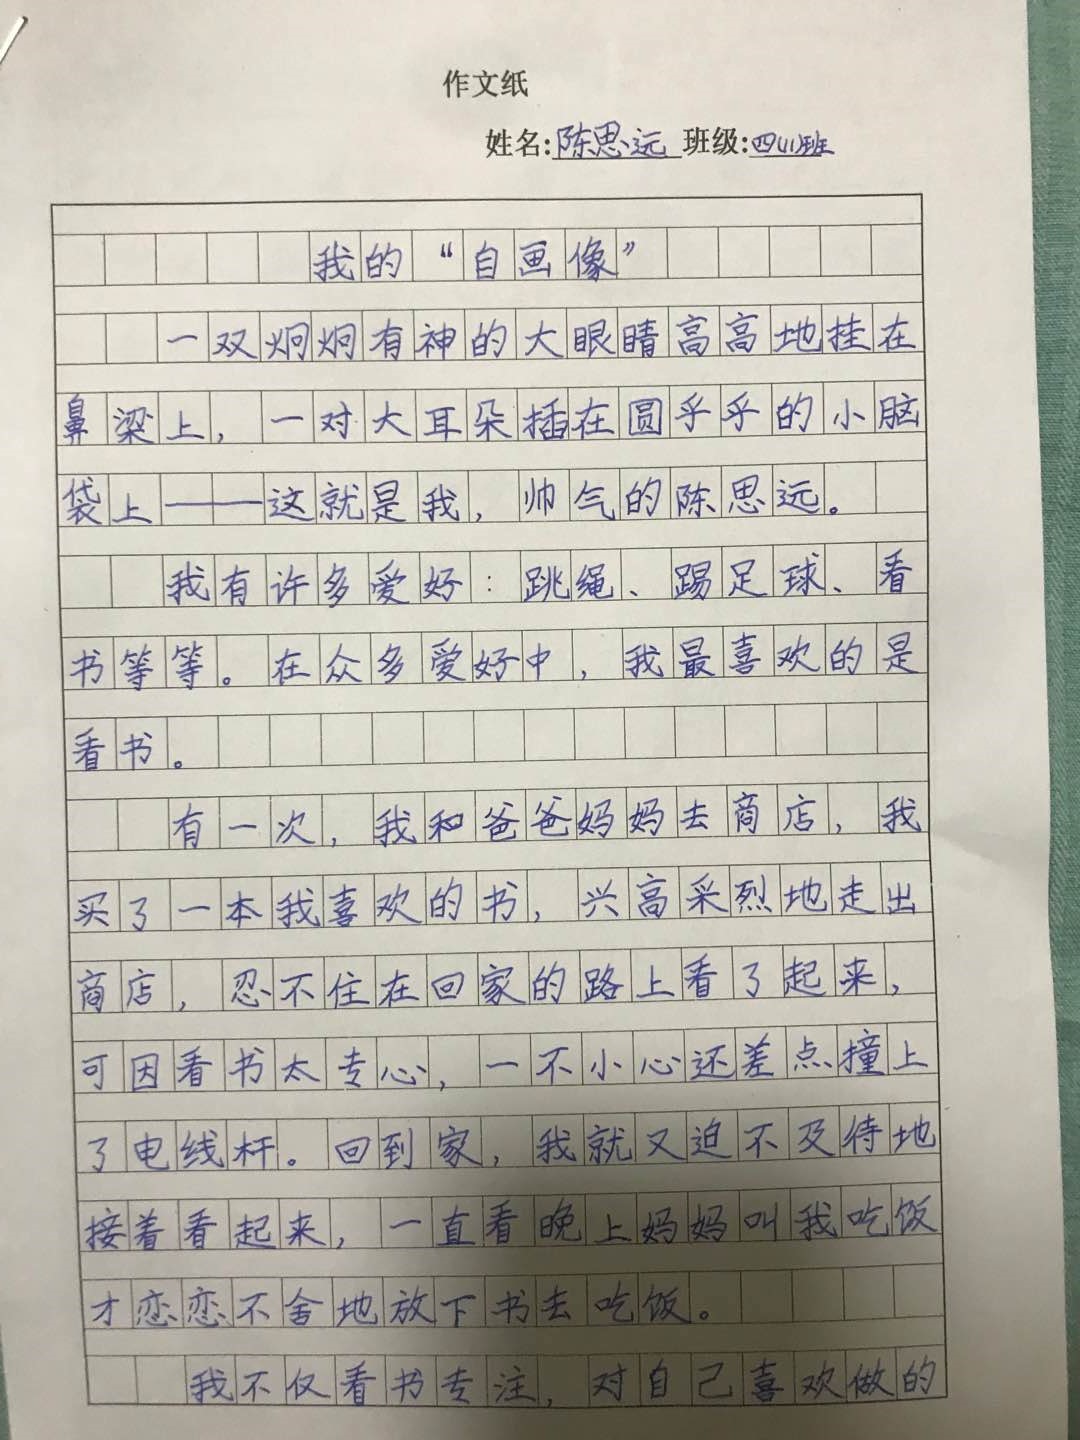 作文纸
姓名:陈思远 班级:四(1)班
我的“自画像”
一双炯炯有神的大眼睛高高地挂在
鼻梁上，一对大耳朵插在圆乎乎的小脑
袋上——这就是我，帅气的陈思远。
我有许多爱好：跳绳、踢足球、看
书等等。在众多爱好中，我最喜欢的是
看书。
有一次，我和爸爸妈妈去商店，我
买了一本我喜欢的书，兴高采烈地走出
商店，忍不住在回家的路上看了起来，
可因看书太专心，一不小心还差点撞上
了电线杆。回到家，我就又迫不及待地
接着看起来，一直看晚上妈妈叫我吃饭
才恋恋不舍地放下书去吃饭。
我不仅看书专注，对自己喜欢做的